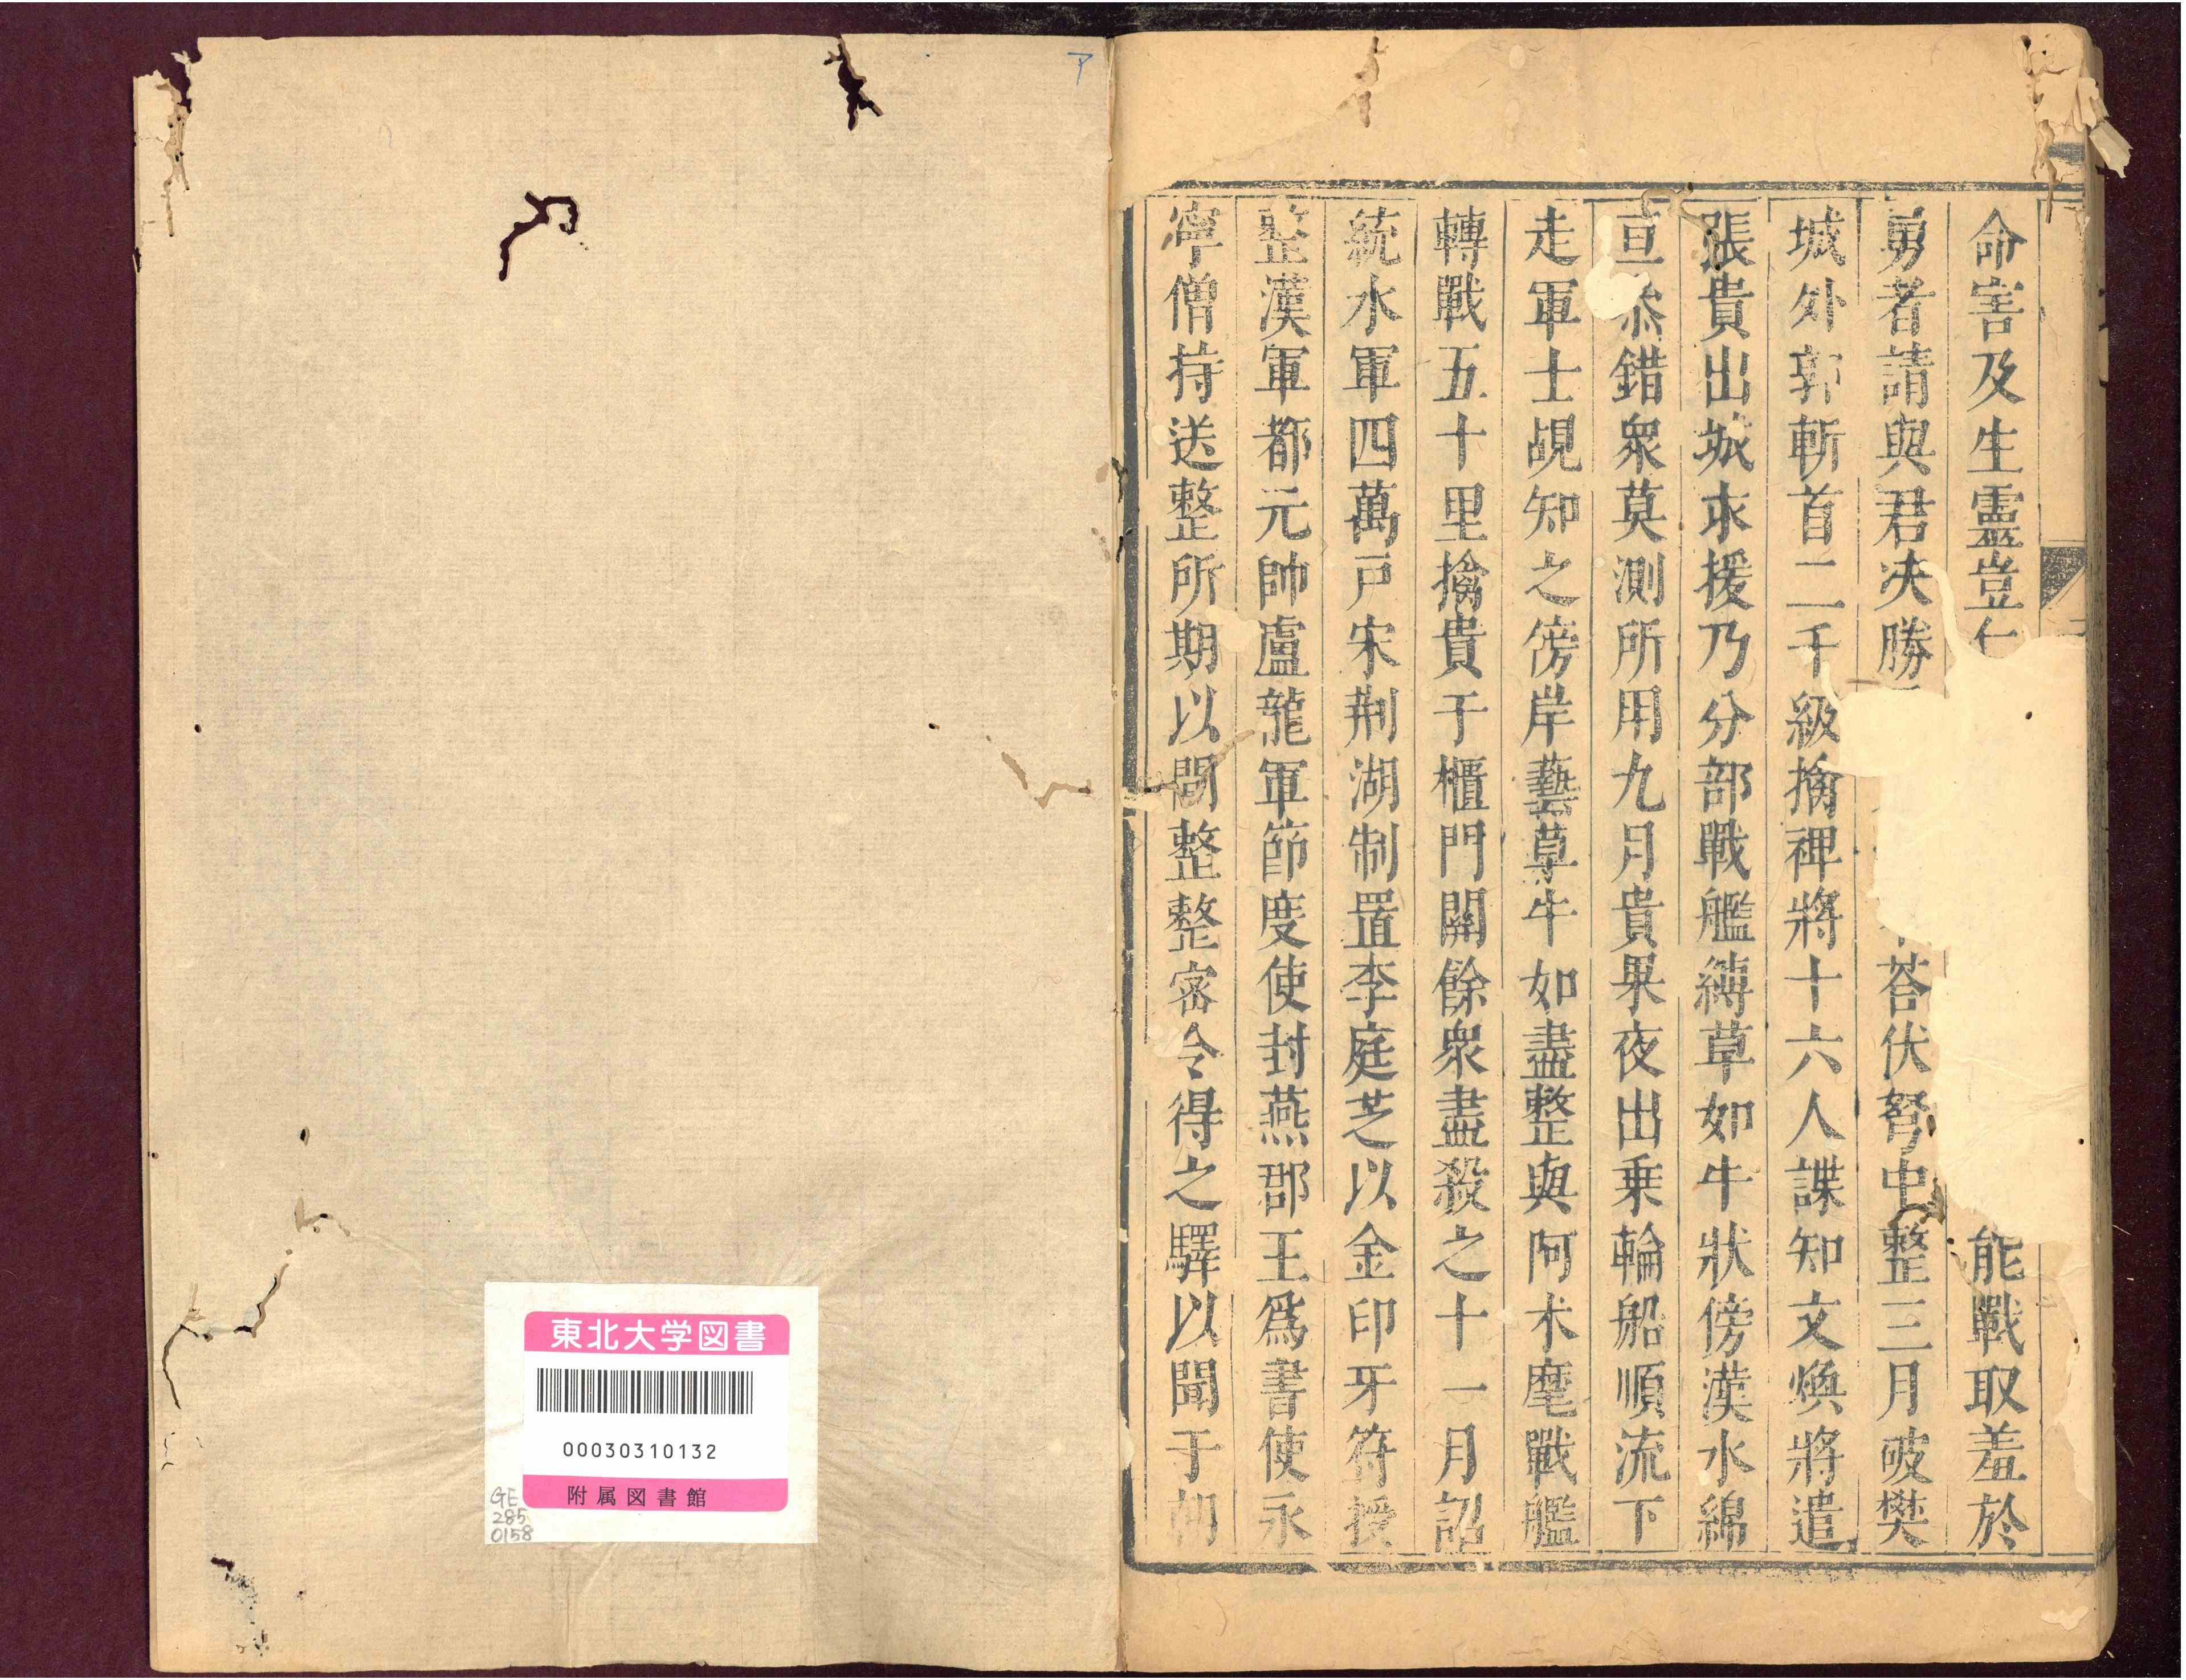 命害及生靈豈仁能戰取羞於
勇者請與君决勝荅伏弩中整三月破樊
城外郭斬首二千級擒裨將十六人諜知文煥將遣
張貴出城求援乃分部戰艦縛草如牛狀傍漢水綿
亘叅錯衆莫測所用九月貴果夜出乗輪船順流下
走軍士覘知之傍岸爇草牛如晝整與阿朮麾戰艦
轉戰五十里擒貴于櫃門關餘衆盡殺之十一月詔
統水軍四萬戸宋荆湖制置李庭芝以金印牙符授
整漢軍都元帥盧龍軍節度使封燕郡王爲書使永
寧僧持送整所期以間整整密令得之驛以聞于朝
ア
東北大学図書
00030310132
附属図書館
GE
285
0158